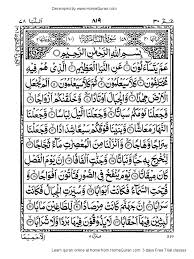 Developed by www.HomeQuran.com
النبا ٧٨
٨١٩
عم ٣٠
بِسْمِ اللّٰهِ الرَّحْمٰنِ الرَّحِيْمِ
عَمَّ يَتَسَآءَلُوْنَ عَنِ النَّبَاِ الْعَظِيْمِ الَّذِيْ هُمْ فِيْهِ
مُخْتَلِفُوْنَ كَلَّا سَيَعْلَمُوْنَ ثُمَّ كَلَّا سَيَعْلَمُوْنَ اَلَمْ نَجْعَلِ
الْاَرْضَ مِهٰدًا وَّالْجِبَالَ اَوْتَادًا وَّخَلَقْنٰكُمْ اَزْوَاجًا
وَّجَعَلْنَا نَوْمَكُمْ سُبَاتًا وَّجَعَلْنَا الَّيْلَ لِبَاسًا وَّجَعَلْنَا
النَّهَارَ مَعَاشًا وَّبَنَيْنَا فَوْقَكُمْ سَبْعًا شِدَادًا وَّجَعَلْنَا
سِرَاجًا وَّهَّاجًا وَّاَنْزَلْنَا مِنَ الْمُعْصِرٰتِ مَآءً ثَجَّاجًا
لِّنُخْرِجَ بِهٖ حَبًّا وَّنَبَاتًا وَّجَنّٰتٍ اَلْفَافًا اِنَّ يَوْمَ الْفَصْلِ
كَانَ مِيْقَاتًا يَّوْمَ يُنْفَخُ فِي الصُّوْرِ فَتَاْتُوْنَ اَفْوَاجًا وَّ
فُتِحَتِ السَّمَآءُ فَكَانَتْ اَبْوَابًا وَّسُيِّرَتِ الْجِبَالُ فَكَانَتْ
سَرَابًا اِنَّ جَهَنَّمَ كَانَتْ مِرْصَادًا لِّلطَّاغِيْنَ مَاٰبًا
Learn quran online at home from HomeQuran.com 3 days Free Trial classes